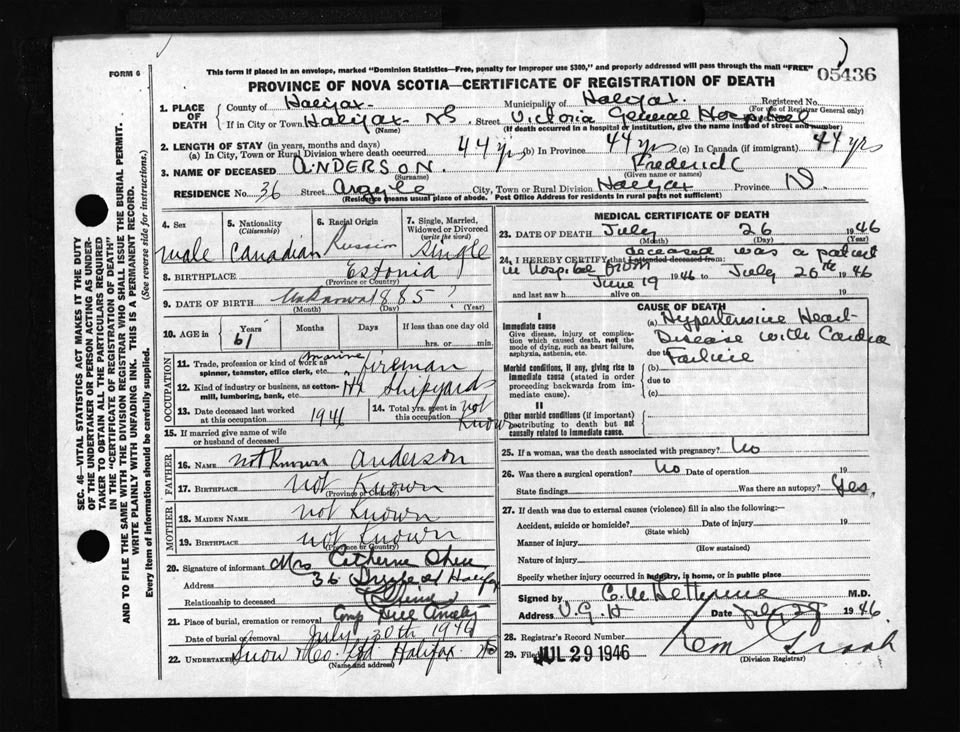 FORM 6
This form if placed in an envelope, marked "Dominion Statistics—Free, penalty for improper use $300," and properly addressed will pass through the mail "FREE"
PROVINCE OF NOVA SCOTIA—CERTIFICATE OF REGISTRATION OF DEATH
05436
1. PLACE OF DEATH
County of Halifax Municipality of Halifax. Registered No.
(For use of Registrar General only)
If in City or Town Halifax NS Street Victoria General Hospital
(Name) (If death occurred in a hospital or institution, give the name instead of street and number)
2. LENGTH OF STAY (in years, months and days)
(a) In City, Town or Rural Division where death occurred 44 yrs (b) In Province 44 yrs (c) In Canada (if immigrant) 44 yrs
3. NAME OF DECEASED ANDERSON. Frederick
(Surname) (Given name or names)
RESIDENCE No. 36 Street Argyle City, Town or Rural Division Halifax Province N.
(Residence means usual place of abode. Post Office Address for residents in rural parts not sufficient)
4. Sex
male
5. Nationality (Citizenship)
Canadian
6. Racial Origin
Russian
7. Single, Married, Widowed or Divorced (write the word)
Single
8. BIRTHPLACE Estonia
(Province or Country)
9. DATE OF BIRTH Unknown 1885?
(Month) (Day) (Year)
10. AGE in Years Months Days If less than one day
61 hrs. or min.
OCCUPATION
11. Trade, profession or kind of work as spinner, teamster, office clerk, etc. marine fireman
12. Kind of industry or business, as cotton-mill, lumbering, bank, etc. Hx Shipyards
13. Date deceased last worked at this occupation 1941
14. Total yrs. spent in this occupation not Known
15. If married give name of wife or husband of deceased
FATHER
16. NAME not Known Anderson
17. BIRTHPLACE not Known
(Province or Country)
MOTHER
18. MAIDEN NAME not Known
19. BIRTHPLACE not Known
(Province or Country)
20. Signature of informant Mrs Catherine
Address 36 Halifax
Relationship to deceased
21. Place of burial, cremation or removal Camp Hill
Date of burial or removal July 30th 1946
22. UNDERTAKER Snow & Co. Ltd. Halifax NS
(Name and address)
MEDICAL CERTIFICATE OF DEATH
23. DATE OF DEATH July 26 1946
(Month) (Day) (Year)
24. I HEREBY CERTIFY that I attended deceased from: deceased was a patient
in Hospital from
June 19 1946 to July 26th 1946
and last saw h alive on 19
CAUSE OF DEATH
I
Immediate cause
Give disease, injury or complication which caused death, not the mode of dying, such as heart failure, asphyxia, asthenia, etc.
(a) Hypertensive Heart
Disease with Cardiac
due to Failure
Morbid conditions, if any, giving rise to immediate cause (stated in order proceeding backwards from immediate cause).
(b)
due to
(c)
II
Other morbid conditions (if important) contributing to death but not causally related to immediate cause.
25. If a woman, was the death associated with pregnancy? No
26. Was there a surgical operation? No Date of operation 19
State findings Was there an autopsy? Yes
27. If death was due to external causes (violence) fill in also the following:—
Accident, suicide or homicide? Date of injury 19
(State which)
Manner of injury
(How sustained)
Nature of injury
Specify whether injury occurred in industry, in home, or in public place
Signed by M.D.
Address V.G.H Date July 29 1946
28. Registrar's Record Number
29. Filed JUL 29 1946
(Division Registrar)
SEC. 46—VITAL STATISTICS ACT MAKES IT THE DUTY
OF THE UNDERTAKER OR PERSON ACTING AS UNDERTAKER TO OBTAIN ALL THE PARTICULARS REQUIRED
IN THE "CERTIFICATE OF REGISTRATION OF DEATH"
AND TO FILE THE SAME WITH THE DIVISION REGISTRAR WHO SHALL ISSUE THE BURIAL PERMIT.
WRITE PLAINLY WITH UNFADING INK. THIS IS A PERMANENT RECORD.
Every item of information should be carefully supplied. (See reverse side for instructions.)